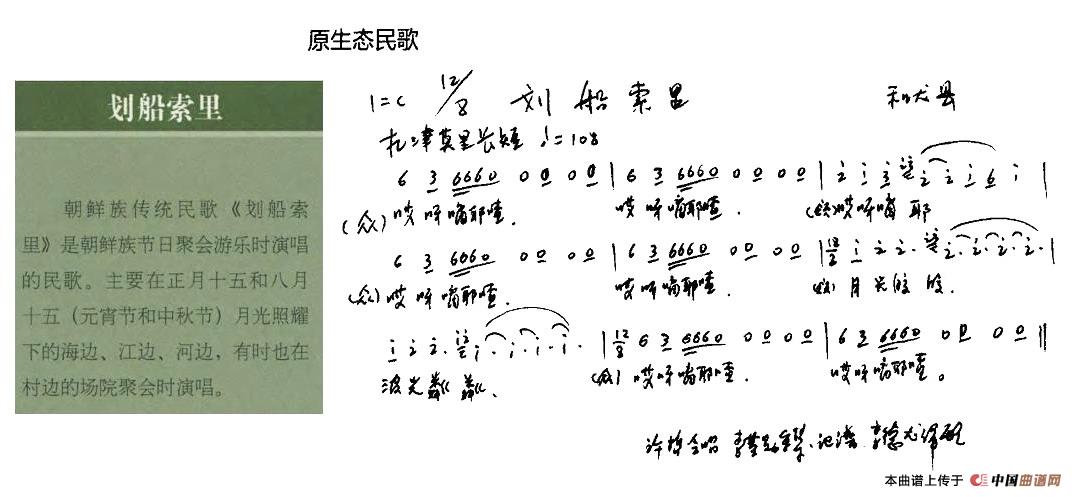 原生态民歌
划船索里
朝鲜族传统民歌《划船索
里》是朝鲜族节日聚会游乐时演唱
的民歌。主要在正月十五和八月
十五（元宵节和中秋节）月光照耀
下的海边、江边、河边，有时也在
村边的场院聚会时演唱。
1=C 12/8 划船索里 和龙县
扎津莫里长短 ♩.=108
6 3 6660 0 0 0 0 | 6 3 6660 0 0 0 0 | 2 1 3 2 2 1 6 1 |
(众) 哎呀嗬耶喳. 哎呀嗬耶喳. 哎呀嗬耶
6 3 6060 0 0 0 0 | 6 3 6660 0 0 0 0 | 1 2 2. 2. 1. 2. 2. |
(众) 哎呀嗬耶喳. 哎呀嗬耶喳. 月光皎皎.
1 2 2. 1. 1. 1. 1. | 12/8 6 3 6660 0 0 0 0 | 6 3 6660 0 0 0 0 ‖
波光粼粼. (众) 哎呀嗬耶喳. 哎呀嗬耶喳。
记谱
本曲谱上传于 中国曲谱网